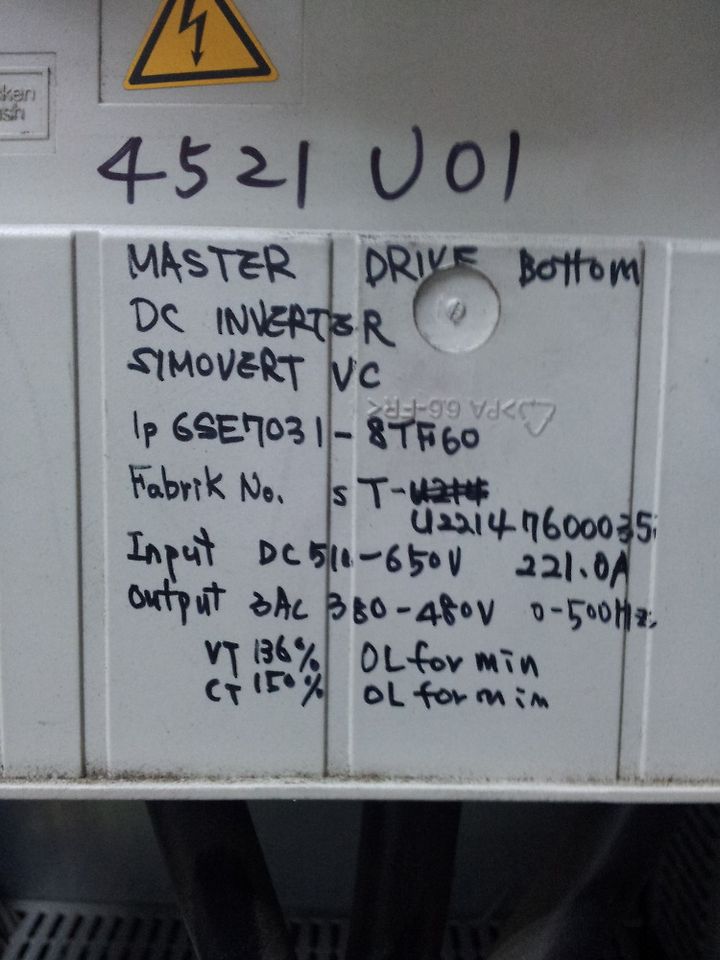 4521 U01
MASTER DRIVE Bottom
DC INVERTER
SIMOVERT VC
>PA 66-FR<
1p 6SE7031-8TF60
Fabrik No. ST-
U2214760035
Input DC 510-650V 221.0A
Output 3AC 380-480V 0-500Hz
VT 136% OL for min
CT 150% OL for min